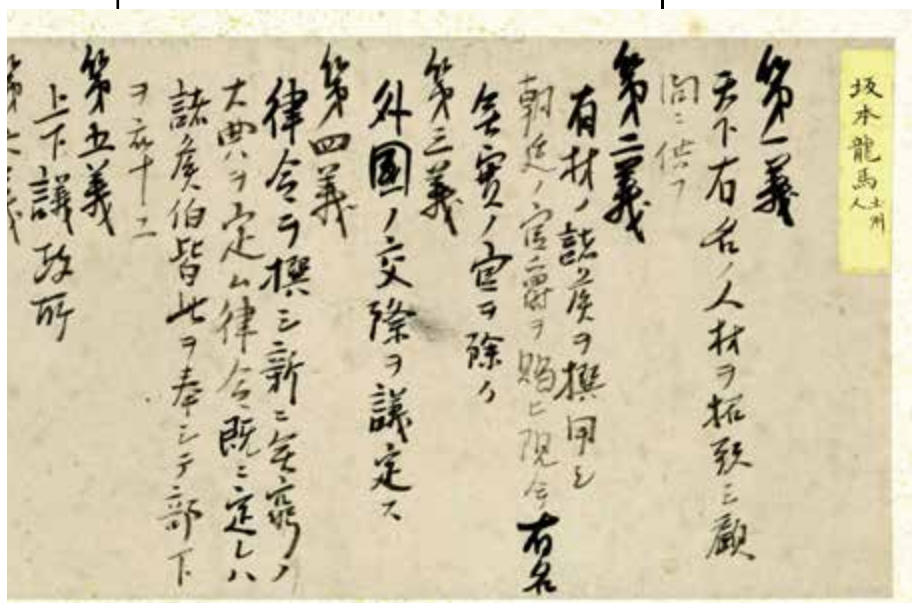 坂本龍馬 土州人
第一義
天下有名ノ人材ヲ招致シ顧
問ニ供フ
第二義
有材ノ諸侯ヲ撰用シ
朝廷ノ官爵ヲ賜ヒ現今有名
無實ノ官ヲ除ク
第三義
外國ノ交際ヲ議定ス
第四義
律令ヲ撰シ新ニ無窮ノ
大典ヲ定ム律令既ニ定レハ
諸侯伯皆此ヲ奉シテ部下
ヲ率ユ
第五義
上下議政所